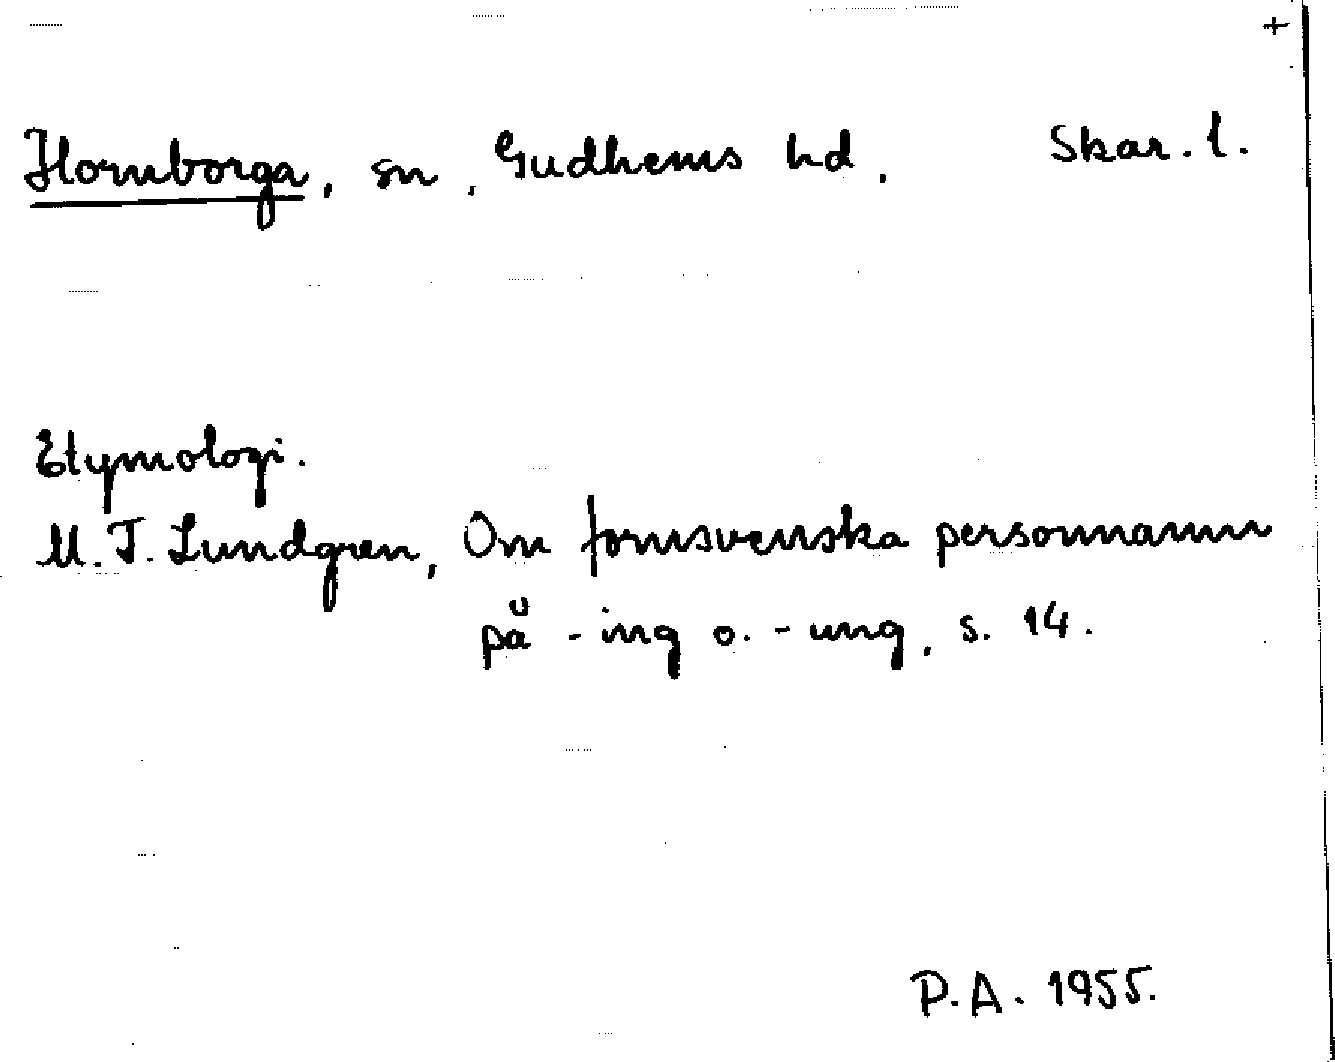 +
Hornborga, sn, Gudhems hd, Skar. l.
Etymologi.
M. F. Lundgren, Om fornsvenska personnamn
på -ing o. -ung, s. 14.
P.A. 1955.